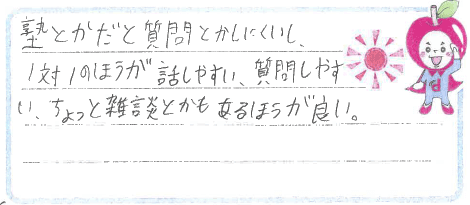 塾とかだと質問とかしにくいし、
1対1のほうが話しやすい、質問しやす
い、ちょっと雑談とかもあるほうが良い。